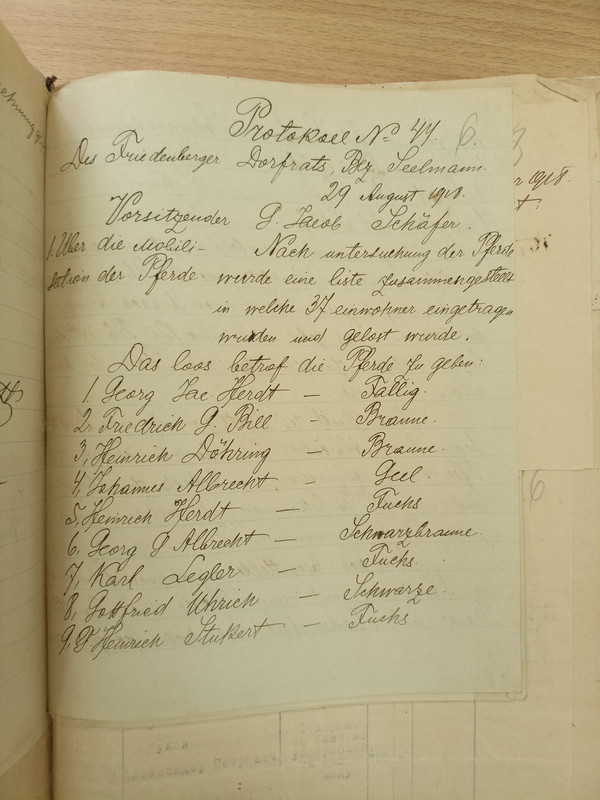 Protokoll No 44. 6.
Des Friedenberger Dorfrats, Bez Seelmann.
29 August 1918.
Vorsitzender G. Jacob Schäfer.
1. Über die Mobili- Nach untersuchung der Pferde
sation der Pferde wurde eine liste zusammengestellt
in welche 37 einwohner eingetragen
wurden und gelost wurde.
Das loos betrof die Pferde zu geben:
1. Georg Jac Herdt – Fallig.
2. Friedrich G. Bill – Braune.
3, Heinrich Döhring – Braune.
4, Johannes Albrecht – Geel.
5, Heinrich Herdt – Fuchs
6. Georg G Albrecht – Schwarzbraune.
7, Karl Legler – Fuchs.
8, Gottfried Uhrich – Schwarze.
9, G. Heinrich Stukert – Fuchs
1918.
6